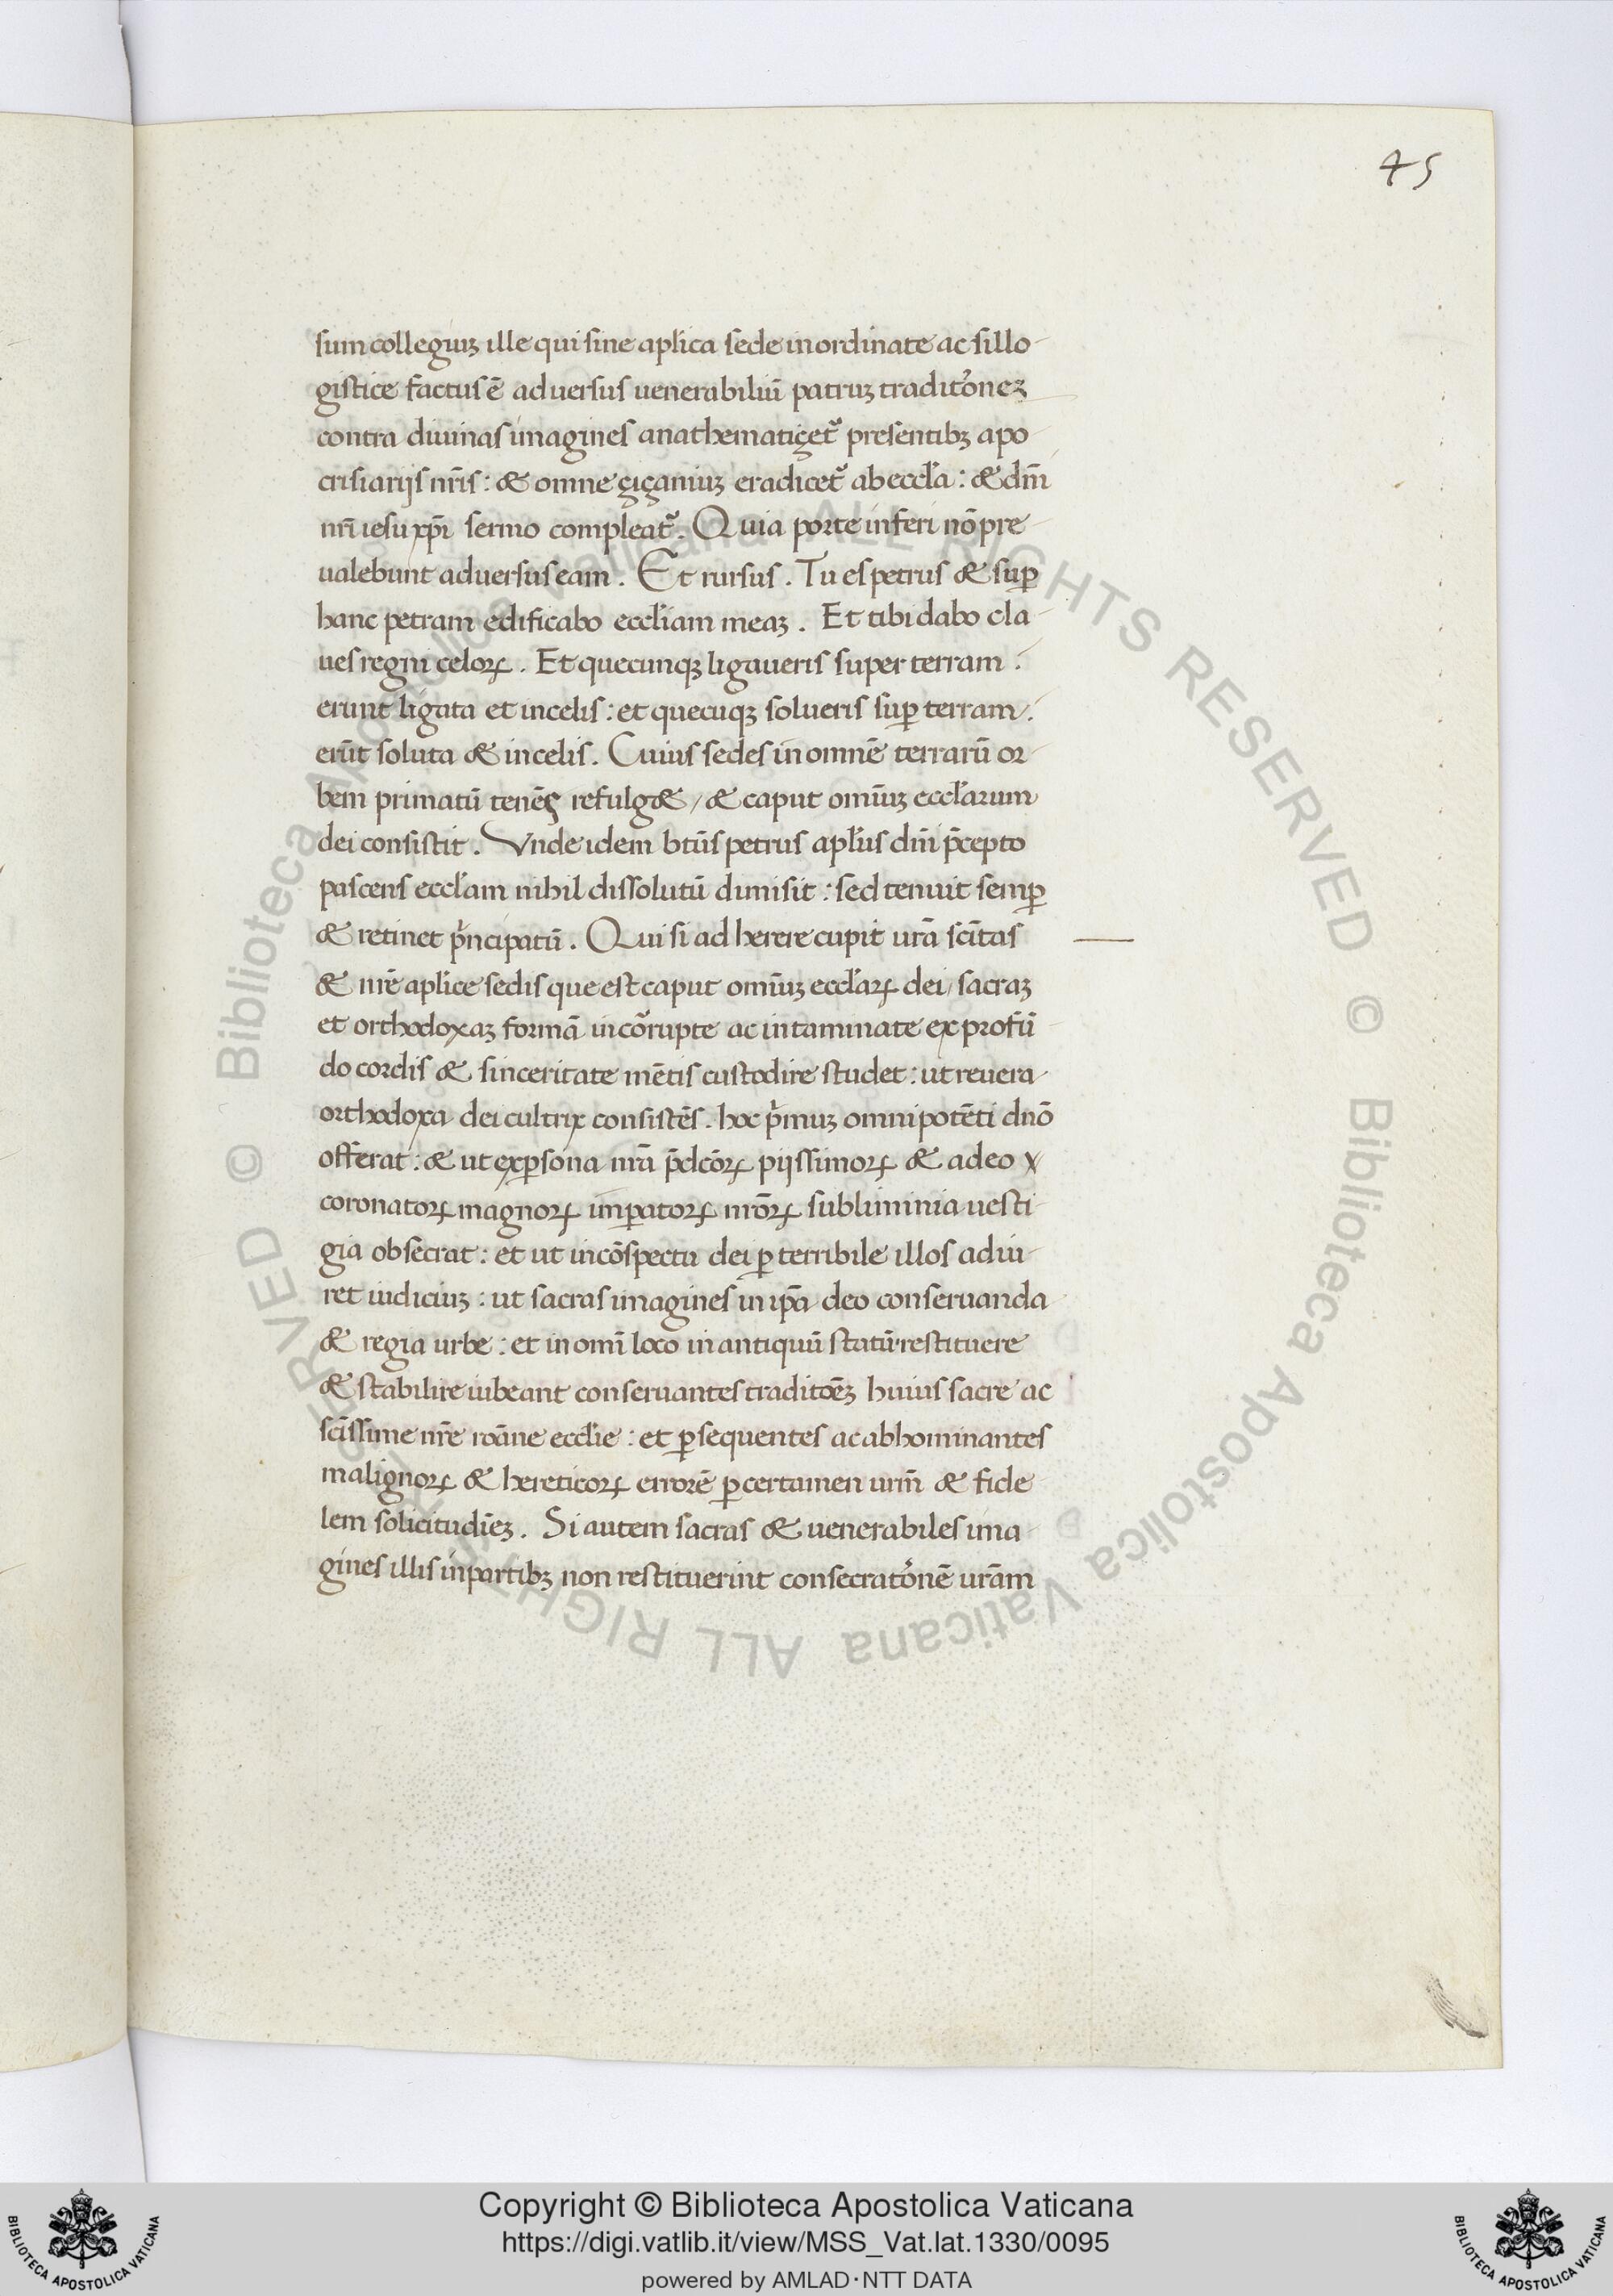 45
sum collegiuʒ ille qui sine aplica sede inordinate ac sillo-
gistice factus ē adversus venerabiliū patruʒ traditōneʒ
contra divinas imagines anathematiçet̉ presentibʒ apo-
crisiarijs nr̄is: & omne çiçaniuʒ eradicet̉ ab eccl̄a: & dn̄i
nr̄i iesu xp̄i sermo compleat̉. Quia porte inferi nō pre-
valebunt adversus eam. Et rursus. Tu es petrus & suꝑ
hanc petram edificabo eccl̄iam meaʒ. Et tibi dabo cla-
ves regni celoꝝ. Et quecunqʒ ligaveris super terram:
erunt ligata et in celis: et quecūqʒ solveris suꝑ terram:
erūt soluta & in celis. Cuius sedes in omnē terrarū or-
bem primatū tenēs refulg&/ & caput omīuʒ eccl̄arum
dei consistit. Unde idem btūs petrus apl̄us dn̄i p̄cepto
pascens eccl̄am nihil dissolutū dimisit: sed tenuit semꝑ
& retinet pͥncipatū. Qui si adherere cupit vrā sc̄itas
& nrē aplice sedis que est caput omīuʒ eccl̄aꝝ dei/ sacraʒ
et orthodoxaʒ formā incōrupte ac intaminate ex profū-
do cordis & sinceritate mētis custodire studet: ut revera
orthodoxa dei cultrix consistēs. hoc pͥmuʒ omnipotēti dn̄o
offerat: & ut ex ꝑsona nrā p̄dcōꝝ pijssimoꝝ & a deo x
coronatoꝝ magnoꝝ imꝑatoꝝ nrōꝝ subliminia vesti-
gia obsecrat: et ut in cōspectu dei ꝑ terribile illos adiu-
ret iudiciuʒ: ut sacras imagines in ip̄a deo conservanda
& regia urbe: et in omī loco in antiquū statū restituere
& stabilire iubeant conservantes traditōēʒ huius sacre ac
sc̄issime nrē roāne eccl̄ie: et ꝑsequentes ac abhominantes
malignoꝝ & hereticoꝝ errorē ꝑ certamen vrm̄ & fide-
lem solicitudīeʒ. Si autem sacras & venerabiles ima-
gines illis in partibʒ non restituerint consecratōnē vrām
© Biblioteca Apostolica Vaticana ALL RIGHTS RESERVED © Biblioteca Apostolica Vaticana ALL RIGHTS RESERVED
Copyright © Biblioteca Apostolica Vaticana
https://digi.vatlib.it/view/MSS_Vat.lat.1330/0095
powered by AMLAD·NTT DATA
BIBLIOTECA APOSTOLICA VATICANA
BIBLIOTECA APOSTOLICA VATICANA